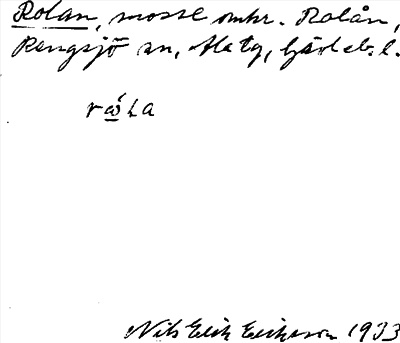 Rolan, mosse omkr. Rolån,
Rengsjö sn, Ala tg, Gävleb. l.
rώ̲La
Nils Erik Eriksson 1933